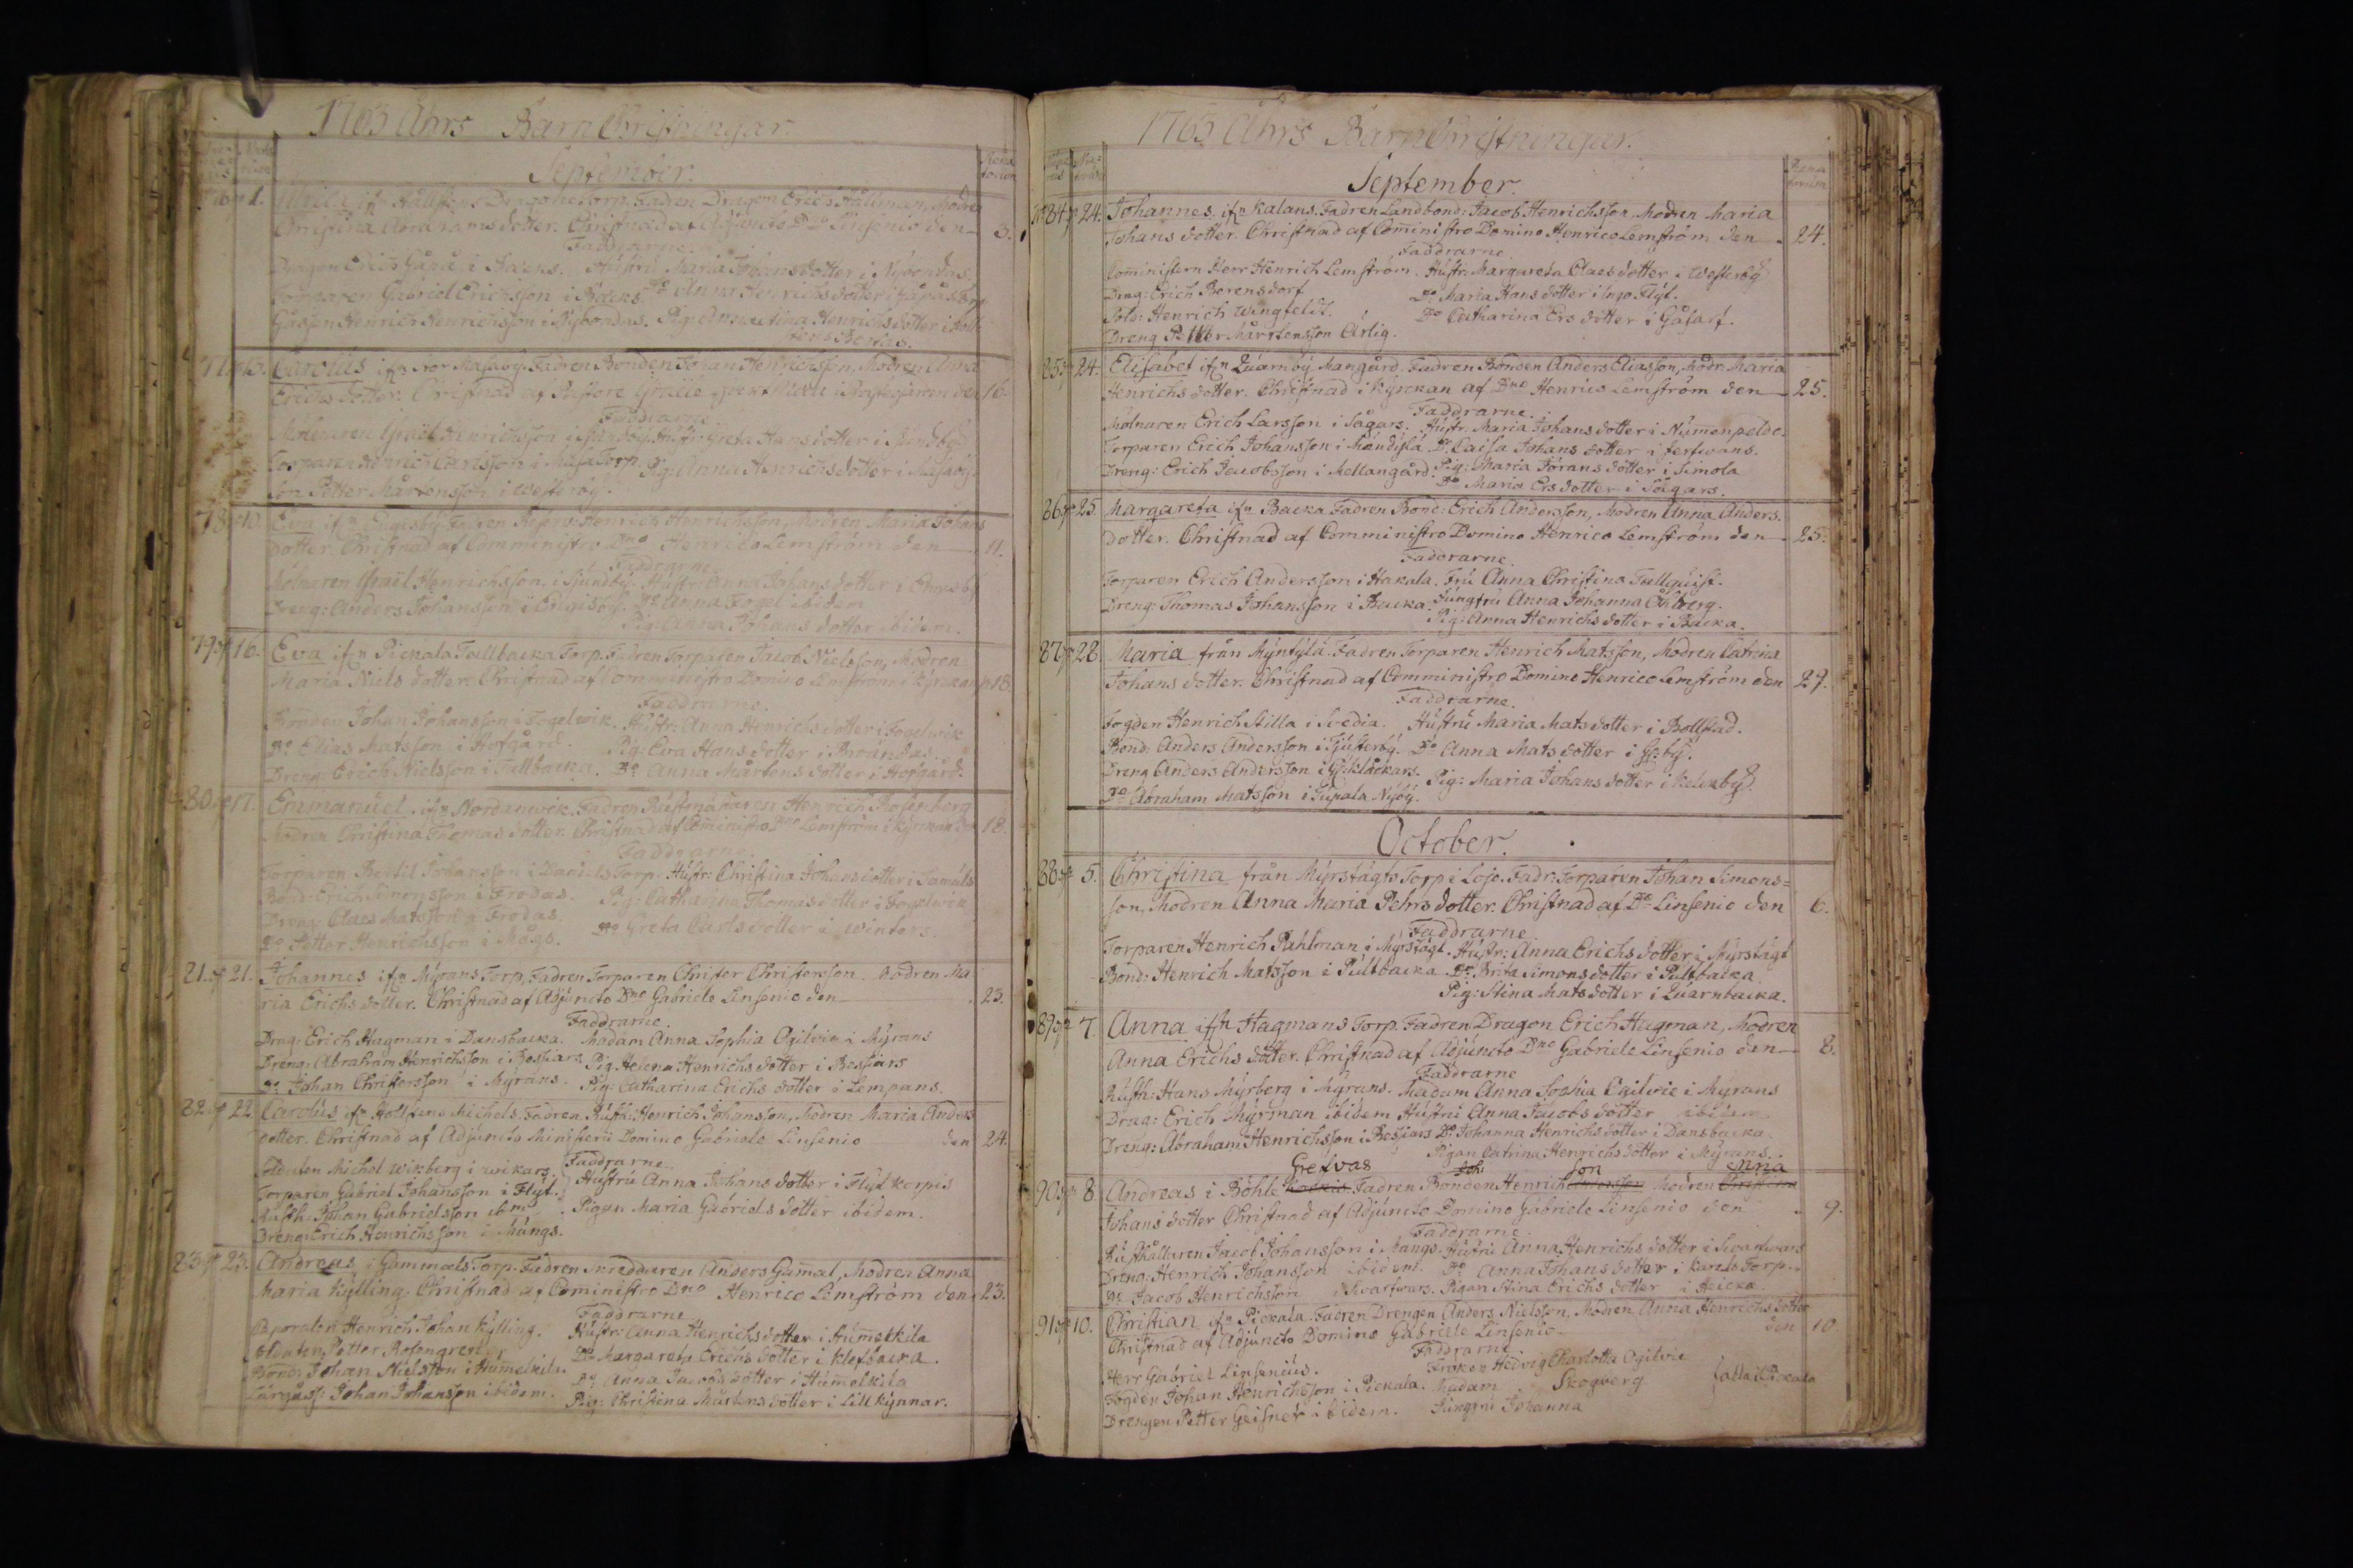 1765 Åhrs Barn Christningar.
September.
Christina Abrahams dotter. Christnad af Adjuncto Dno Linsenio den 3.
Faddrarne.
Dragon Erich Gåpå i Backs. Hustru Maria Johans dotter i Nybondas.
Torparen Gabriel Erichsson i Backs. Do Anna Henrichs dotter i
Gåssen Henrich Henrichsson i Nybondas. Pig: Anna Stina Henrichs dotter i
77 13. Carolus ifrn Masaby. Fadren Bonden Johan Henrichsson, Modren Anna
Erichs dotter. Christnad af i Prästegården den 16.
Faddrarne
Molnaren Israel Henrichsson i Sjundby. Hustr: Greta Hans dotter i Sjundby
Torparen Henrich Carlsson i Masa Torp. Pig: Anna Henrichs dotter i Masaby.
Son Petter Mårtensson i Westerby.
78 10. Eva ifrn Engisby. Fadren Henrich Henrichsson, Modren Maria Johans
dotter. Christnad af Comministro Dno Henrico Lemström den 11.
Faddrarne
Molnaren Israel Henrichsson, i Sjundby. Hustr: Anna Johans dotter i
Dreng: Anders Johansson i Engisby. Do Anna Fogel ibidem
Pig: Anna Johans dotter ibidem.
79 16. Eva ifrn Pickala Tallbacka Torp. Fadren Torparen Jacob Nielsson, Modren
Maria Niels dotter. Christnad af Comministro Domino Lemström i Kyrckan 18.
Faddrarne.
Bonden Johan Johansson i Fogelwik. Hustr: Anna Henrichs dotter i Fogelwik
Do Elias Matsson i Hofgård. Pig: Eva Hans dotter i Brändas.
Dreng Erich Nielsson i Tallbacka. Do Anna Mårtens dotter i Hofgård.
80 17. Emmanuel ifrn Nordanwik. Fadren Rustmästaren Henrich Rosenberg
Modren Christina Thomas dotter. Christnad af Comministro Dno Lemström i Kyrckan den 18.
Faddrarne.
Torparen Bertil Johansson i Daniels Torp. Hustr: Christina Johans dotter i
Bond: Erich Simonsson i Frodas. Pig: Catharina Thomas dotter i Fogelwik
Dreng Claes Matsson i Frodas.
Do Petter Henrichsson i Mågs. Do Greta Carls dotter i Winters.
81 21. Johannes ifrn Myrans Torp. Fadren Torparen Christer Christersson. Modren Ma
ria Erichs dotter. Christnad af Adjuncto Dno Gabriele Linsenio den 23.
Faddrarne.
Drag: Erich Hagman i Dansbacka. Madam Anna Sophia Ogilvie i Myrans
Dreng: Abraham Henrichsson i Bessiars. Pig. Helena Henrichs dotter i Bessiars
Do Johan Christersson i Myrans. Pig: Catharina Erichs dotter i Lempans.
82 22. Carolus ifrn Hollstens Michels. Fadren Rusth: Henrich Johansson, Modren Maria Anders
dotter. Christnad af Adjuncto Ministerii Domino Gabriele Linsenio den 24.
Faddrarne.
Soldaten Michel Wikberg i Wikars.
Torparen Gabriel Johansson i Flyt. Hustru Anna Johans dotter i Flyt Korpis
Rusth: Johan Gabrielsson ibm. Pigan Maria Gabriels dotter ibidem.
Dreng: Erich Henrichsson i Mungs.
83 23. Andreas i Gammals Torp. Fadren Skreddaren Anders Gamal, Modren Anna
Maria Kylling. Christnad af Cominstro Dno Henrico Lemström den 23.
Faddrarne
Corporalen Henrich Johan Kylling. Hustr: Anna Henrichs dotter i Humelkila
Soldaten Petter Rosengren. Do Margareta Erichs dotter i Klefbacka.
Bond: Johan Nielsson i Humelkila. Do Anna Jacobs dotter i Humelkila
Lärgåss: Johan Johansson ibidem. Pig: Christina Mårtens dotter i Lillkynnar.
1765 Åhrs Barn Christningar.
September.
84 24. Johannes ifrn Kalans. Fadren Landbond: Jacob Henrichsson, Modren Maria
Johans dotter. Christnad af Cominstro Domino Henrico Lemström den 24.
Faddrarne
Cominstern Herr Henrich Lemström. Hustr. Margareta Claes dotter i Westerby
Dreng: Erich Berensdorf Do Maria Hans dotter i Ingo Flyt.
Sold: Henrich Wingfeldt. Do Catharina Ers dotter i Gåsarf.
Dreng Petter Mårtensson Ärlig.
85 24. Elisabet ifrn Quarnby Mangård. Fadren Bonden Anders Eliasson, Modr. Maria
Henrichs dotter. Christnad i Kyrckan af Dno Henrico Lemström den 25.
Faddrarne.
Molnaren Erich Larsson i Sågars. Hustr. Maria Johans dotter i Numenpelde.
Torparen Erich Johansson i Mändilä Do Caisa Johans dotter i
Dreng: Erich Jacobsson i Mellangård. Pig: Maria Jörans dotter i Simola
Do Maria Ers dotter i Sågars.
86 25. Margareta ifrn Backa Fadren Bond: Erich Andersson, Modren Anna Anders-
dotter. Christnad af Comministro Domino Henrico Lemström den 25.
Faddrarne.
Torparen Erich Andersson i Hakala. Fru Anna Christina Tallquist.
Dreng: Thomas Johansson i Backa. Jungfru Anna Johanna Åhlberg.
Pig: Anna Henrichs dotter i Backa.
87 28 Maria från Myntylä. Fadren Torparen Henrich Matsson, Modren Catrina
Johans dotter. Christnad af Comministro Domino Henrico Lemström den 29.
Faddrarne.
Fogden Henrich Stilla i Svedia. Hustru Maria Mats dotter i Bollstad.
Bond: Anders Andersson i Tjusterby. Do Anna Mats dotter i
Dreng Anders Andersson i Pig: Maria Johans dotter i Kelckby.
Do Abraham Matsson i Nyby.
October.
88 5. Christina från Myrstägts Torp i Lojo. Fadr: Torparen Johan Simons-
son, Modren Anna Maria Pehrs dotter. Christnad af Do Linsenio den 6.
Faddrarne
Torparen Henrich Pahlman i Myrstägt. Hustr: Anna Erichs dotter i Myrstägt
Bond: Henrich Matsson i Pultbacka. Do Brita Simons dotter i Pultbacka
Pig: Stina Mats dotter i Quarnbacka.
89 7. Anna ifrn Hagmans Torp. Fadren Dragon Erich Hagman, Modren
Anna Erichs dotter. Christnad af Adjuncto Dno Gabriele Linsenio den 8.
Faddrarne
Rusth: Hans Myrberg i Myrans. Madam Anna Sophia Ogilvie i Myrans
Drag: Erich Myrman ibidem Hustru Anna Jacobs dotter ibidem
Dreng: Abraham Henrichsson i Bessiars Do Johanna Henrichs dotter i Dansbacka.
Pigan Catrina Henrichs dotter i Myrans.
Grefvas Joh: son Anna
90 8. Andreas i Böhle Fadren Bonden Henrich Andersson Modren Christina
Johans dotter Christnad af Adjuncto Domino Gabriele Linsenio den 9.
Faddrarne.
Rusthållaren Jacob Johansson i Mangs. Hustru Anna Henrichs dotter i Svartwars
Dreng: Henrich Johansson ibidem. Do Anna Johans dotter i Karels Torp.
Do Jacob Henrichsson i Svartwars. Pigan Stina Erichs dotter i Heicka
91 10. Christian ifrn Pickala. Fadren Drengen Anders Nielsson, Modren Anna Henrichs dotter
Christnad af Adjuncto Domino Gabriele Linsenio den 10
Faddrarne
Herr Gabriel Linsenius. Fröken Hedvig Charlotta Ogilvie
Fogden Johan Henrichsson i Pickala. Madam Skogberg alla i Pickala
Drengen Petter Geisner ibidem. Jungfru Johanna